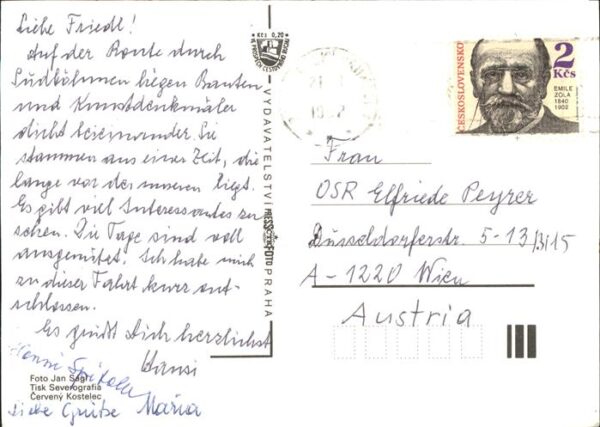 Liebe Friedl!
Auf der Route durch
Südböhmen liegen Bauten
und Kunstdenkmäler
dicht beieinander. Sie
stammen aus einer Zeit, die
lange vor der unseren liegt.
Es gibt viel Interessantes zu
sehen. Die Tage sind voll
ausgenützt. Ich habe mich
zu dieser Fahrt kurz ent-
schlossen.
Es grüßt Dich herzlichst
Hansi
Liebe Grüße Maria
Foto Jan Ságl
Tisk Severografia
Červený Kostelec
Kčs 0,20
VYDAVATELSTVÍ PRESSFOTO PRAHA
ČESKOSLOVENSKO
2
Kčs
EMILE
ZOLA
1840
1902
Frau
OSR Elfriede Peyrer
Düsseldorferstr. 5-13/3/15
A-1220 Wien
Austria